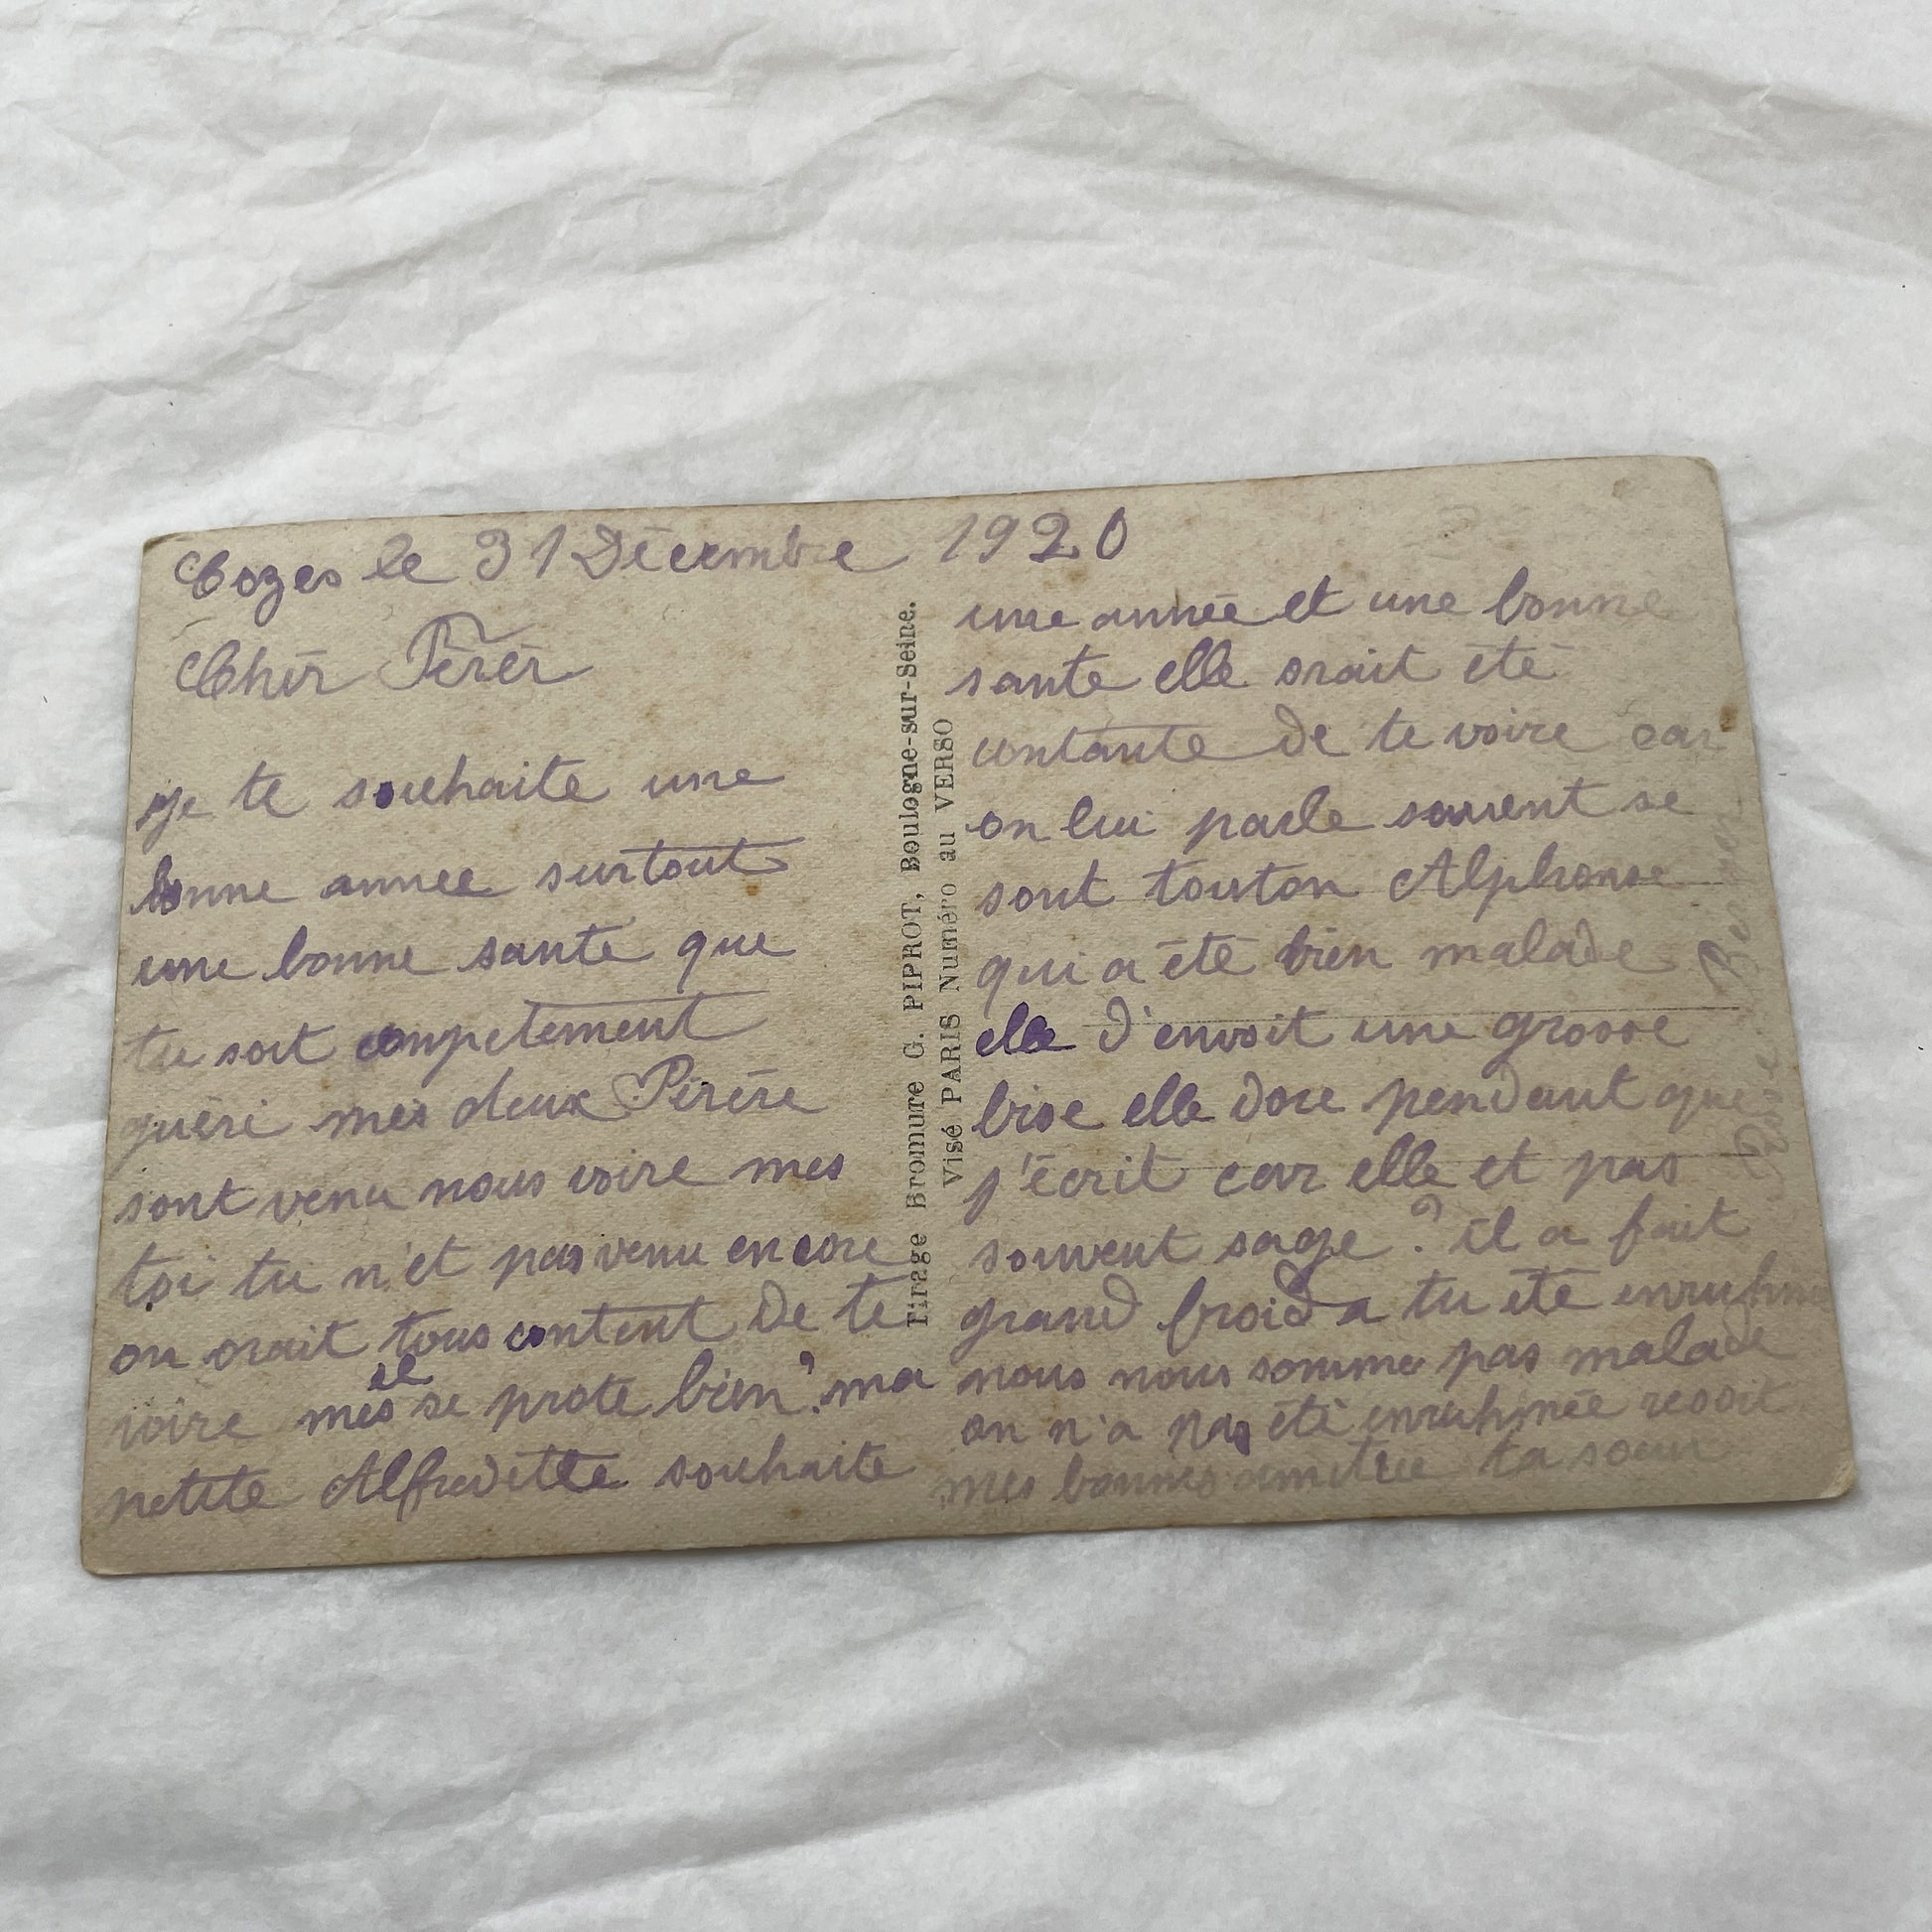 Cozes le 31 Décembre 1920
Cher Férèr
je te souhaite une
bonne annee surtout
une bonne sante que
tu soit conpetement
guéri mes deux Férère
sont venu nous voire mes
toi tu n'et pas venu encore
on orait tous content de te
voire mes el se prote bien? ma
petite Alfredette souhaite
une année et une bonne
sante elle orait été
contante de te voire car
on lui parle souvent se
sont tonton Alphonse
qui a été bien malade
elle d'envoit une grosse
bise elle dore pendant que
j'écrit car elle et pas
souvent sage? il a fait
grand froid a tu été enruhmé
nous nous somme pas malade
on n'a pas été enruhmée resoit
mes bonnes amitiee ta soeur
Tirage Bromure G. PIPROT, Boulogne-sur-Seine.
Visé PARIS Numéro au VERSO